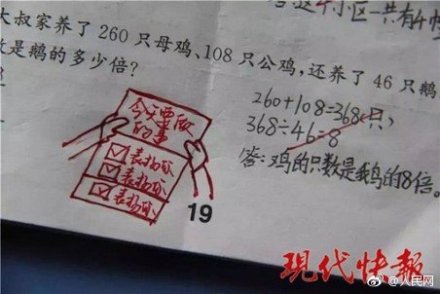 这个小区一共有4
大叔家养了260只母鸡、108只公鸡，还养了46只鹅
数是鹅的多少倍？
260+108=368(只)
368÷46=8
答:鸡的只数是鹅的8倍。
今天要做
的事
表扬你
表扬你
表扬你
19
现代快报
@人民网